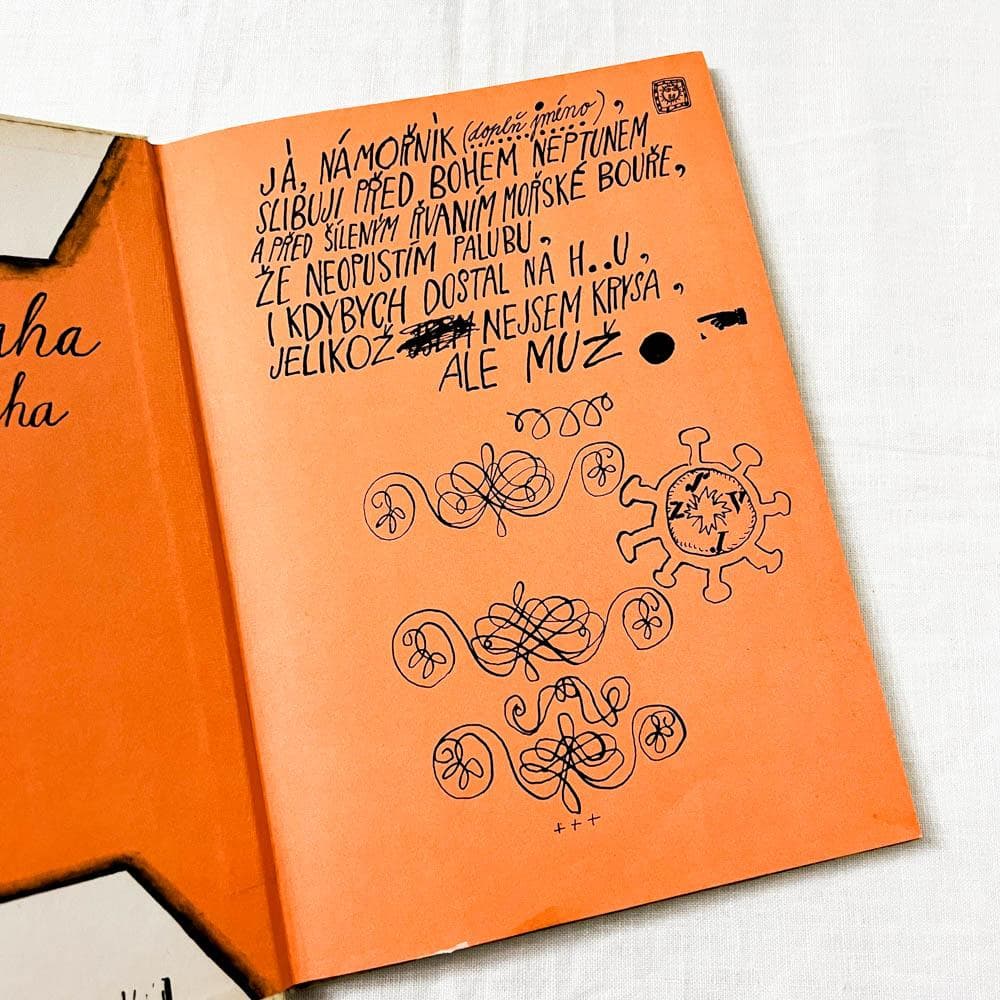 aha
ha
JÀ, NÁMOŘNÌK (doplň jméno),
SLIBUJI PŘED BOHEM NEPTUNEM
A PŘED ŠÍLENÝM ŘVANÍM MOŘSKÉ BOUŘE,
ŽE NEOPUSTÍM PALUBU,
I KDYBYCH DOSTAL NA H..U,
JELIKOŽ NEJSEM KRYSA,
ALE MUŽ
+++